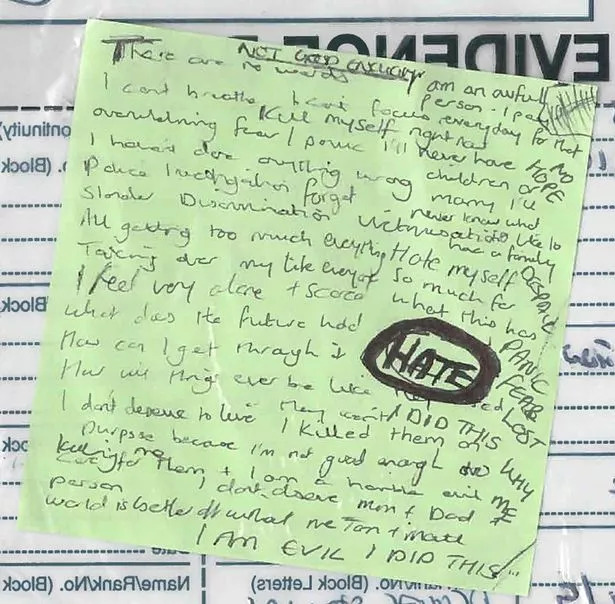 EVIDENCE
NOT GOOD ENOUGH
There are no words
I am an awful person. I pay
everyday for that
I can't breathe I can't focus
Kill myself right now
overwhelming fear / panic I'll never have
children or
NO
HOPE
I haven't done anything wrong marry I'll
never know what
Police Investigation forget
its like to
have a family
Slander Discrimination Victimisation
All getting too much everything Hate myself
DESPAIR
Taking over my life everyday so much for
what this has
I feel very alone + scared
PANIC
What does the future hold
FEAR
How can I get through it
HATE
LOST
How will things ever be like
I DID THIS
I don't deserve to live I killed them on
WHY
purpose because I'm not good enough
ME
care for them + I am a horrible evil
person I don't deserve mum + Dad
world is better off without me
I AM EVIL I DID THIS
ontinuity)
o. (Block
Block
Block
ock
Date
Name/Rank/No. (Block)
ck Letters)
o. (Block)